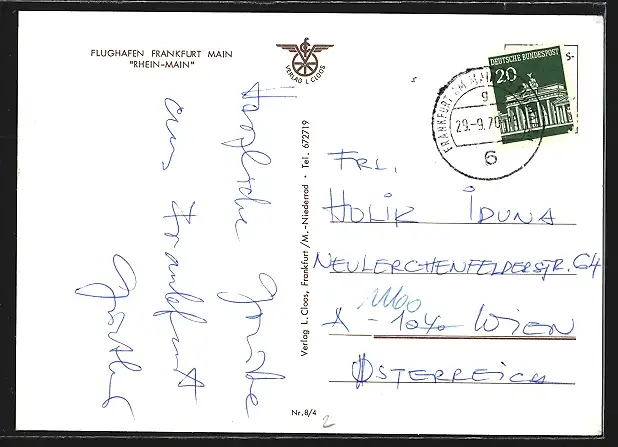 FLUGHAFEN FRANKFURT MAIN
"RHEIN-MAIN"
VERLAG L. CLOOS
Herzliche Grüße
aus Frankfurt
Verlag L. Cloos, Frankfurt/M.-Niederrad • Tel. 672719
DEUTSCHE BUNDESPOST
20
FRANKFURT AM MAIN
g
29.-9.70
6
FRL.
HOLIK IDUNA
NEULERCHENFELDERSTR. 64
1160
A - 1040 WIEN
ÖSTERREICH
Nr. 8/4
2